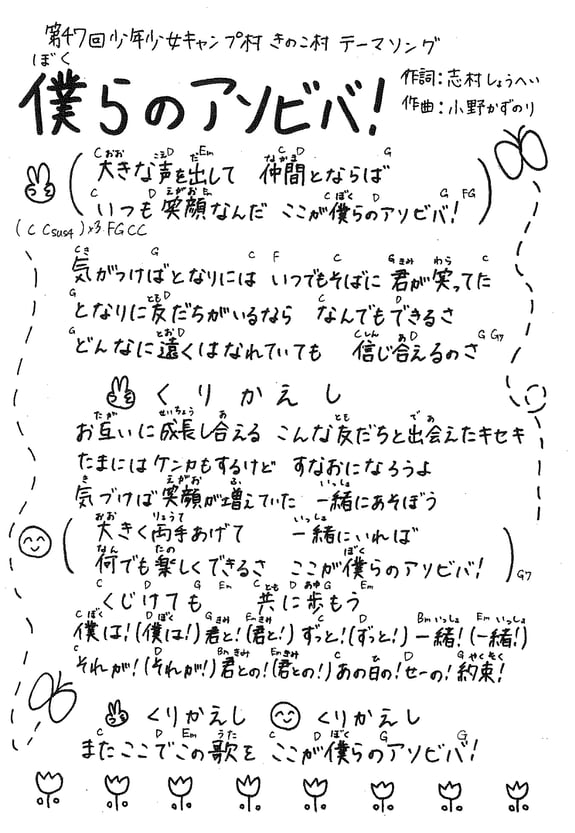 第47回少年少女キャンプ村 きのこ村 テーマソング
ぼく
僕らのアソビバ!
作詞:志村しょうへい
作曲:小野かずのり
C おお こえ D だ Em なかま C D G
大きな声を出して 仲間とならば
C D えがお Em C ぼく D G FG
いつも笑顔なんだ ここが僕らのアソビバ!
(C Csus4)×3 FGCC
C き G C F C G きみ わら C
気がつけばとなりには いつでもそばに 君が笑ってた
G とも D C D
となりに友だちがいるなら なんでもできるさ
G とお D C しん あ D G G7
どんなに遠くはなれていても 信じ合えるのさ
くりかえし
たが せいちょう あ とも で あ
お互いに成長し合える こんな友だちと出会えたキセキ
たまにはケンカもするけど すなおになろうよ
き えがお ふ いっしょ
気づけば笑顔が増えていた 一緒にあそぼう
おお りょうて いっしょ
大きく両手あげて 一緒にいれば
なん たの ぼく
何でも楽しくできるさ ここが僕らのアソビバ!
G7
C D G Em C とも D あゆ G Em
くじけても 共に歩もう
C ぼく D ぼく G きみ Em きみ C D Bm いっしょ Em いっしょ
僕は!(僕は!)君と!(君と!)ずっと!(ずっと!)一緒!(一緒!)
C D Bm きみ Em きみ C ひ D G やくそく
それが!(それが!)君との!(君との!)あの日の!せーの!約束!
くりかえし くりかえし
C D Em うた C D ぼく G G
またここでこの歌を ここが僕らのアソビバ!